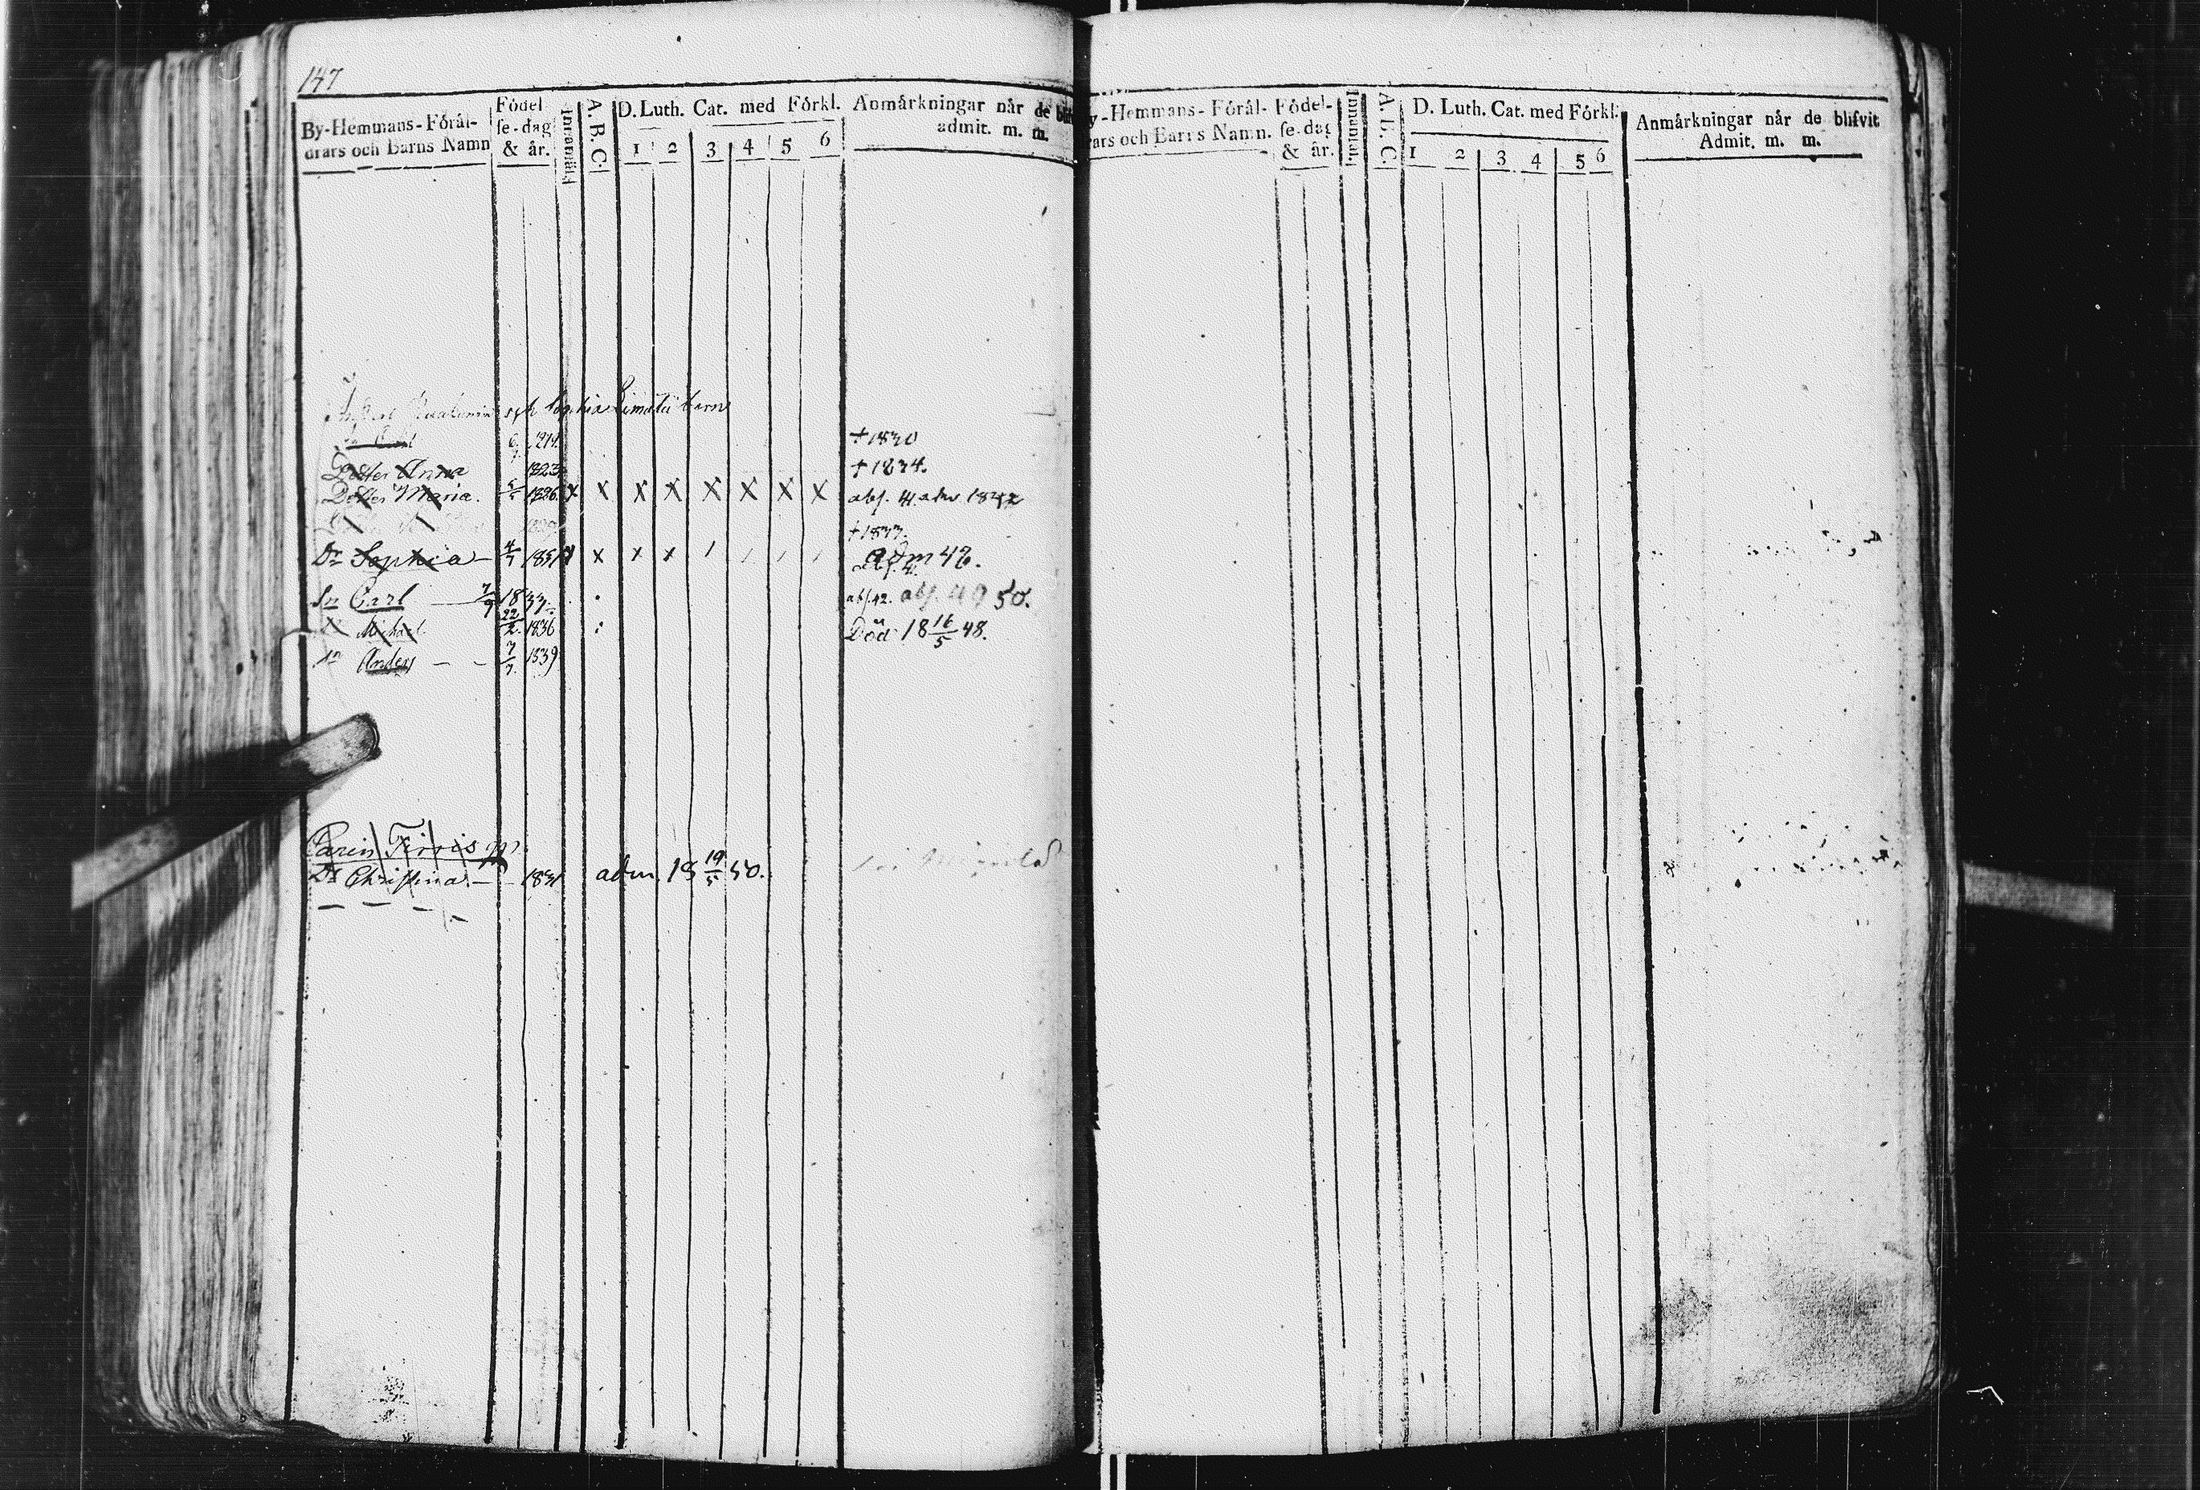 147
By-Hemmans-Förål-
drars och Barns Namn
Födel
se-dag
& år.
Innantill
A. B. C.
D. Luth. Cat. med Förkl.
1 2 3 4 5 6
Anmärkningar når de blif
admit. m. m.
och Sophia Simatu barn
†1830
Dotter Anna 1823 †1834.
Dotter Maria. 1826. X X X X X X X X abs. 41. adm 1842
†1833.
Dr Sophia — 4/7 1831 x x x x / / / / adm 48.
Sn Carl — 7/9 1833 abs. 42. abs. 49 50.
Michael 22/2. 1836 Död 18 16/5 48.
Sn Anders — — 7/7. 1839
Carin Firris
Dr Christina. — — 1831 adm. 18 19/5 50.
y-Hemmans-Förål-
rars och Barns Namn.
Födel-
se-dag
& år.
Innantill
A. B. C.
D. Luth. Cat. med Förkl.
1 2 3 4 5 6
Anmärkningar når de blifvit
Admit. m. m.